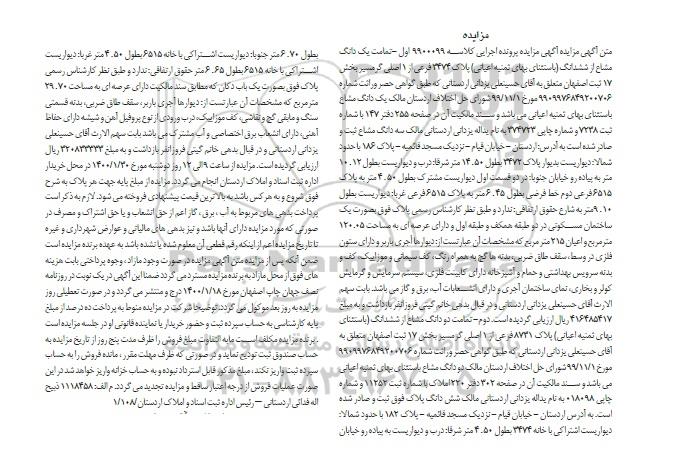 مزایده
متن آگهی مزایده آگهی مزایده پرونده اجرایی کلاسه 9900099 اول -تمامت یک دانگ
مشاع از ششدانگ (باستثنای بهای ثمنیه اعیانی) پلاک 3474 فرعی از 1 اصلی گرمسیر بخش
17 ثبت اصفهان متعلق به آقای حسینعلی یزدانی اردستانی که طبق گواهی حصر وراثت شماره
9909976849200706 مورخ 99/11/1 شورای حل اختلاف اردستان مالک یک دانگ مشاع
باستثنای بهای ثمنیه اعیانی می باشد و سند مالکیت آن در صفحه 255 دفتر 147 با شماره
ثبت 7238 و شماره چاپی 374723 به نام یداله یزدانی اردستانی مالک سه دانگ مشاع ثبت و
صادر شده است به آدرس: اردستان - خیابان قیام - نزدیک مسجد قائمیه - پلاک 186 با حدود
شمالا: دیواریست بدیوار پلاک 3472 بطول 14.50 متر شرقا: درب و دیواریست بطول 10.12
متر به پیاده رو خیابان جنوبا: در دو قسمت اول دیواریست مشترک بطول 4.50 متر به پلاک
6515 فرعی دوم خط فرضی بطول 6.45 متر به پلاک 6515 فرعی غربا: دیواریست بطول
10.9 متر به شارع حقوق ارتفاقی: ندارد و طبق نظر کارشناس رسمی پلاک فوق بصورت یک
ساختمان مسکونی در دو طبقه همکف و طبقه اول و دارای عرصه ای به مساحت 120.05
مترمربع و اعیان 215 متر مربع که مشخصات آن عبارتست از: دیوارها آجری باربر و دارای ستون
فلزی در وسط، سقف طاق ضربی، بدنه ها گچ به همراه رنگ، کف سیمانی و موزاییک، کف و
بدنه سرویس بهداشتی و حمام و آشپزخانه دارای کابینت فلزی، سیستم سرمایش و گرمایش
کولر و بخاری، نمای ساختمان آجری و دارای انشعابات آب، برق و گاز می باشد. بابت سهم
الارث آقای حسینعلی یزدانی اردستانی و در قبال بدهی خانم گیتی فروزانفر بازداشت و به مبلغ
416485417 ریال ارزیابی گردیده است. دوم- تمامت دو دانگ مشاع از ششدانگ (باستثنای
بهای ثمنیه اعیانی) پلاک 8731 فرعی از 1 اصلی گرمسیر بخش 17 ثبت اصفهان متعلق به
آقای حسینعلی یزدانی اردستانی که طبق گواهی حصر وراثت شماره 9909976849200706
مورخ 99/11/1 شورای حل اختلاف اردستان مالک دو دانگ مشاع باستثنای بهای ثمنیه اعیانی
می باشد و سند مالکیت آن در صفحه 302 دفتر 220 املاک با شماره ثبت 11252 و شماره
چاپی 018098 به نام یداله یزدانی اردستانی مالک شش دانگ پلاک فوق ثبت و صادر شده
است. به آدرس اردستان - خیابان قیام - نزدیک مسجد قائمیه - پلاک 182 با حدود شمالا:
دیواریست اشتراکی با خانه 3474 بطول 4.50 متر شرقا: درب و دیواریست به پیاده رو خیابان
بطول 6.70 متر جنوبا: دیواریست اشتراکی با خانه 6515 بطول 4.50 متر غربا: دیواریست
اشتراکی با خانه 6515 بطول 6.65 متر حقوق ارتفاقی: ندارد و طبق نظر کارشناس رسمی
پلاک فوق بصورت یک باب دکان که مطابق سند مالکیت دارای عرصه ای به مساحت 29.70
متر مربع که مشخصات آن عبارتست از: دیوارها آجری باربر، سقف طاق ضربی، بدنه قسمتی
سنگ و مابقی گچ و نقاشی، کف موزاییک، درب ورودی از نوع پروفیل آهن و شیشه دارای حفاظ
آهنی، دارای انشعاب برق اختصاصی و آب مشترک می باشد بابت سهم الارث آقای حسینعلی
یزدانی اردستانی و در قبال بدهی خانم گیتی فروزانفر بازداشت و به مبلغ 3208333333 ریال
ارزیابی گردیده است. مزایده از ساعت 9 الی 12 روز دوشنبه مورخ 1400/1/30 در محل خریدار
اداره ثبت اسناد و املاک اردستان انجام می گردد. مزایده از مبلغ پایه جهت هر پلاک به شرح
فوق شروع و به هر کس باشد به بالاترین قیمت پیشنهادی فروخته می شود. لازم به ذکر است
پرداخت بدهی های مربوط به آب ، برق ، گاز اعم از حق انشعاب و یا حق اشتراک و مصرف در
صورتی که مورد مزایده دارای آنها باشد و نیز بدهی های مالیاتی و عوارض شهرداری و غیره
تا تاریخ مزایده اعم از اینکه رقم قطعی آن معلوم شده یا نشده باشد به عهده برنده مزایده است
ضمن آنکه پس از مزایده متن آگهی مزایده در صورت وجود مازاد ، وجوه پرداختی بابت هزینه
های فوق از محل مازاد به برنده مزایده مسترد می گردد ضمنا این آگهی در یک نوبت در روزنامه
نصف جهان چاپ اصفهان مورخ 1400/1/18 درج و منتشر می گردد و در صورت تعطیلی روز
مزایده به روز بعد موکول می گردد. توضیحا شرکت در مزایده منوط به پرداخت ده درصد از مبلغ
پایه کارشناسی به حساب سپرده ثبت و حضور خریدار یا نماینده قانونی او در جلسه مزایده است
. برنده مزایده مکلف است مابه التفاوت مبلغ فروش را ظرف مدت پنج روز از تاریخ مزایده به
حساب صندوق ثبت تودیع نماید و در صورتی که ظرف مهلت مقرر ، مانده فروش را به حساب
سپرده ثبت واریز نکند، مبلغ مذکور قابل استرداد نبوده و به حساب خزانه واریز خواهد شد در این
صورت عملیات فروش از درجه اعتبار ساقط و مزایده تجدید می گردد. م الف: 1118458 ذبیح
اله فدائی اردستانی - رئیس اداره ثبت اسناد و املاک اردستان /1/108